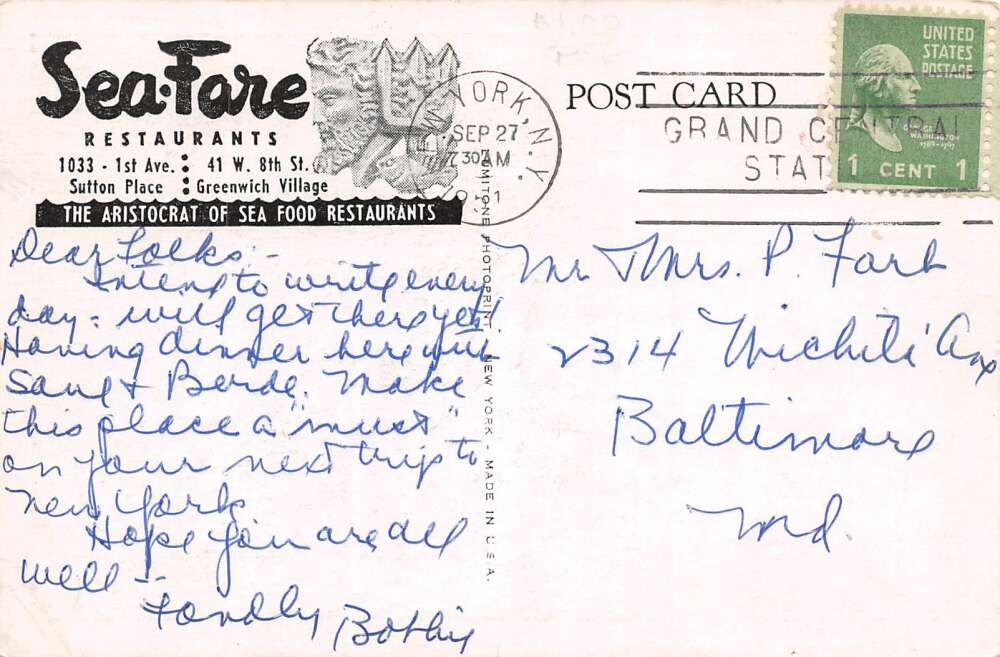 Sea-Fare
RESTAURANTS
1033 - 1st Ave. : 41 W. 8th St.
Sutton Place : Greenwich Village
THE ARISTOCRAT OF SEA FOOD RESTAURANTS
Dear Folks -
Intend to write every
day - will get there yet!
Having dinner here with
Sang & Berde. Make
this place a "must"
on your next trip to
New York
Hope you are all
well --
Fondly Bobbie
LUMITONE PHOTOPRINT · NEW YORK · MADE IN U.S.A.
YORK, N.Y.
SEP 27
730 AM
POST CARD
GRAND CENTRAL
STAT
UNITED
STATES
POSTAGE
GEORGE
WASHINGTON
1789-1797
1 CENT 1
Mr & Mrs. P.
2314 Wichita Ave
Baltimore
Md.